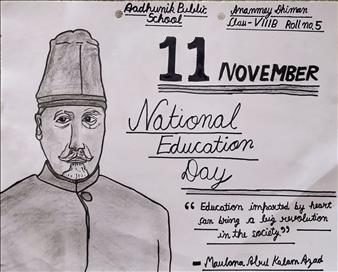 Aadhunik Public School
Ananmey Dhiman
Class - VIIIB Roll no. 5
11 NOVEMBER
National
Education
Day
“ Education imparted by heart
can bring a big revolution
in the society”
- Maulana Abul Kalam Azad